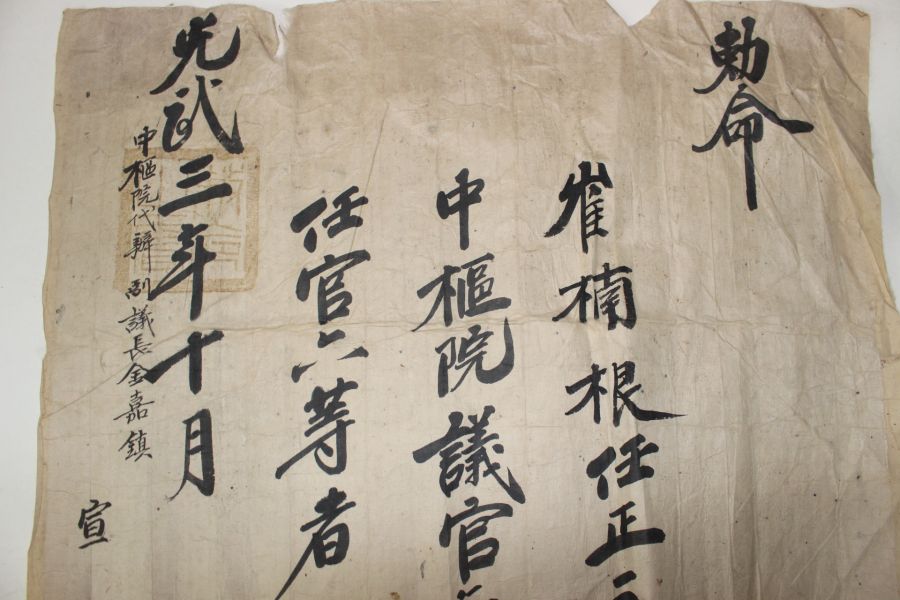 勅命
崔楠根任正
中樞院議官
任官六等者
光武三年十月
中樞院代辦副議長金嘉鎮
宣